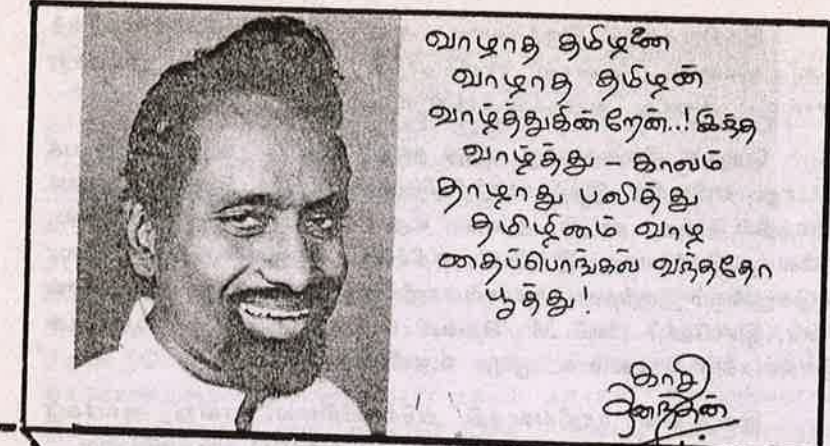 வாழாத தமிழனை
வாழாத தமிழன்
வாழ்த்துகின்றேன்..! இந்த
வாழ்த்து - காலம்
தாழாது பலித்து
தமிழினம் வாழ
தைப்பொங்கல் வந்ததோ
பூத்து!
காசி
ஆனந்தன்